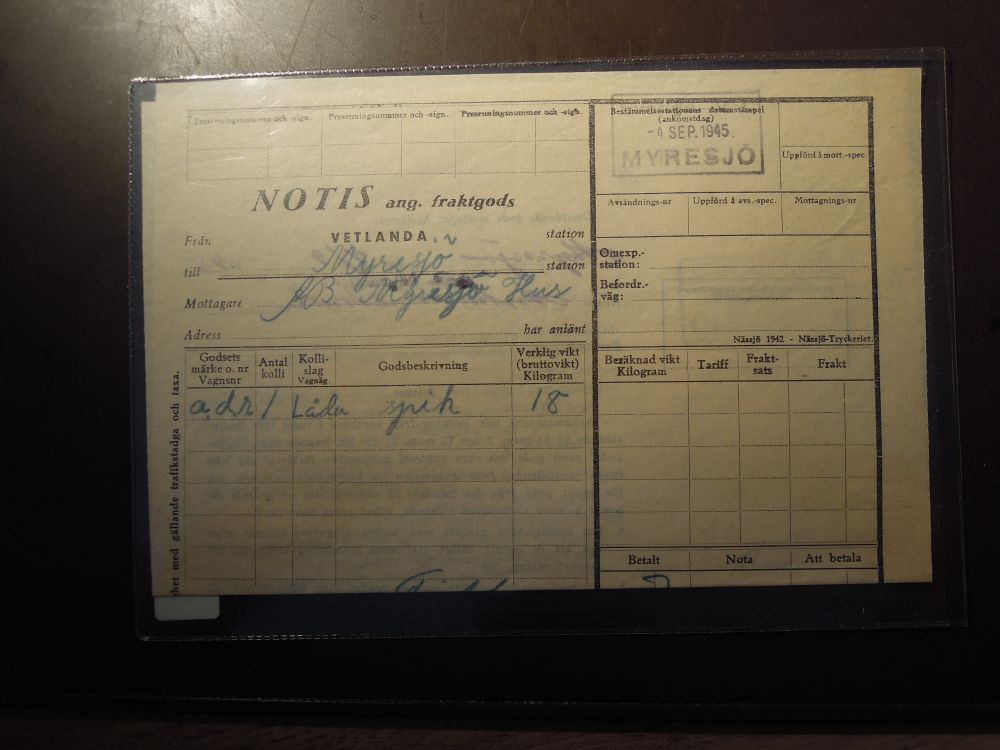 Presenningsnummer och -sign. Presenningsnummer och -sign. Presenningsnummer och -sign.
NOTIS ang. fraktgods
Från VETLANDA station
till Myresjö station
Mottagare AB. Myresjö Hus
Adress har anlänt
Godsets märke o. nr Vagnsnr
Antal kolli
Kolli-slag Vagnäg.
Godsbeskrivning
Verklig vikt (bruttovikt) Kilogram
adr 1 Låda spik 18
:het med gällande trafikstadga och taxa.
Bestämmelsestationens datumstämpel
(ankomstdag)
-4 SEP. 1945
MYRESJÖ
Uppförd å mott.-spec.
Avsändnings-nr Uppförd å avs.-spec. Mottagnings-nr
Omexp.-
station:
Befordr.-
väg:
Nässjö 1942 - Nässjö-Tryckeriet.
Beräknad vikt Kilogram
Tariff
Frakt-sats
Frakt
Betalt Nota Att betala